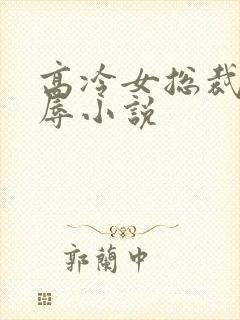 高冷女总裁
辱小说
郭蘭中